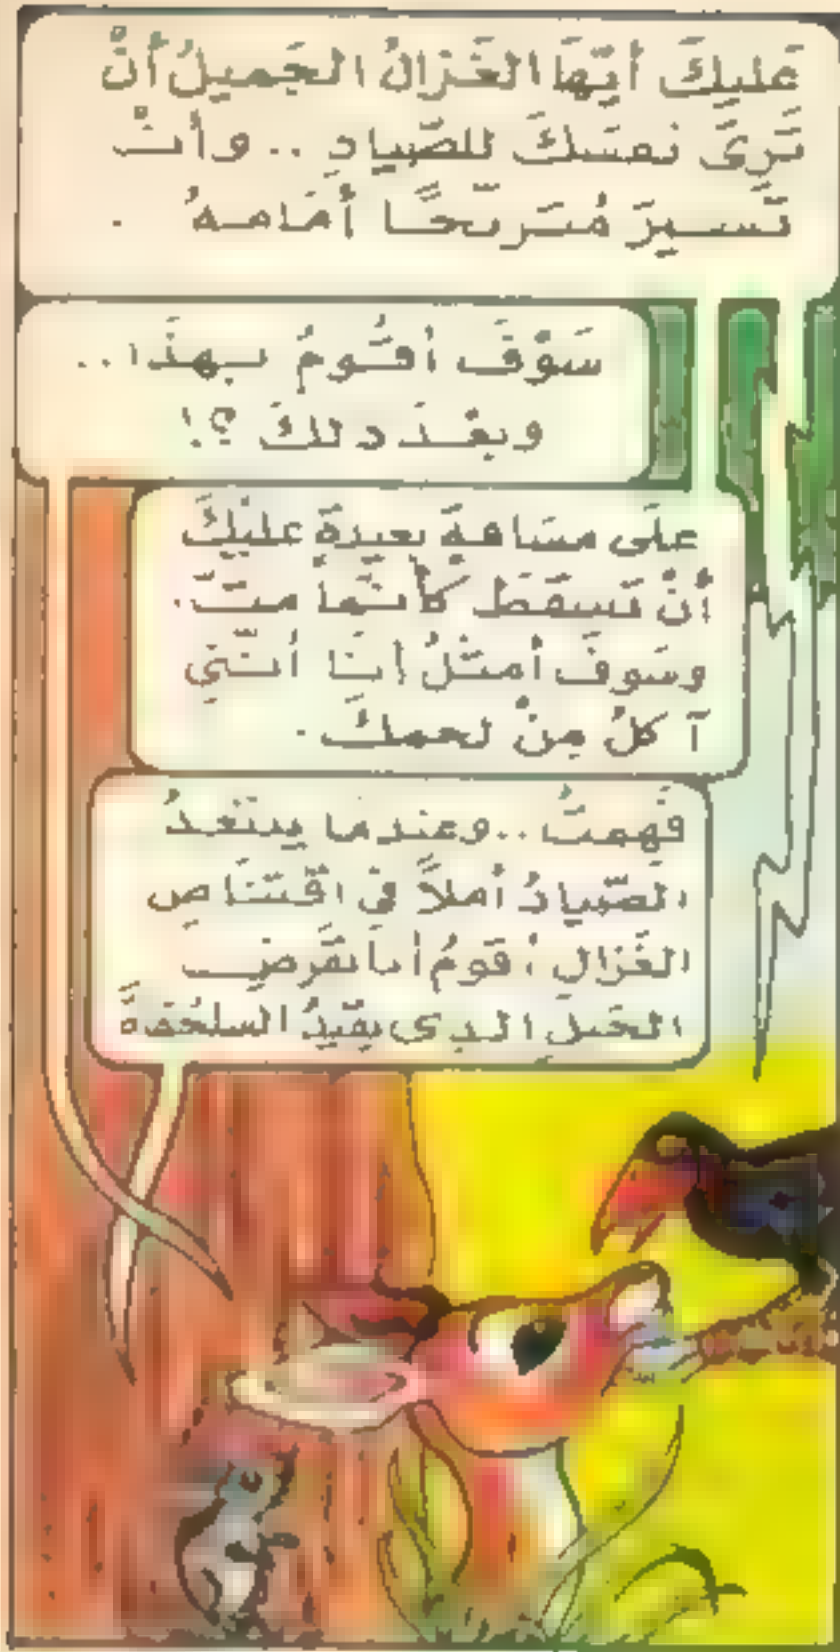 عَليكَ أيّهَا الغَزالُ الجَميلُ أنْ
تَرىَ نفسَكَ للصّيادِ .. وأنْ
تَسيرَ مُترنّحًا أمَامهُ .
سَوْفَ أقُومُ بهذَا ..
وبعْدَ ذلكَ ؟!
علَى مسَافةٍ بعيدةٍ عليْكَ
أنْ تَسقطَ كأنّمَا متّ .
وسَوفَ أمثّلُ أنَا أنّني
آكلُ مِنْ لحمكَ .
فَهِمتُ .. وعندمَا يبتَعدُ
الصّيادُ أملاً في اقْتنَاصِ
الغَزالِ أقومُ أنَا بقَرضِ
الحَبلِ الذي يقيّدُ السلحُفاةَ